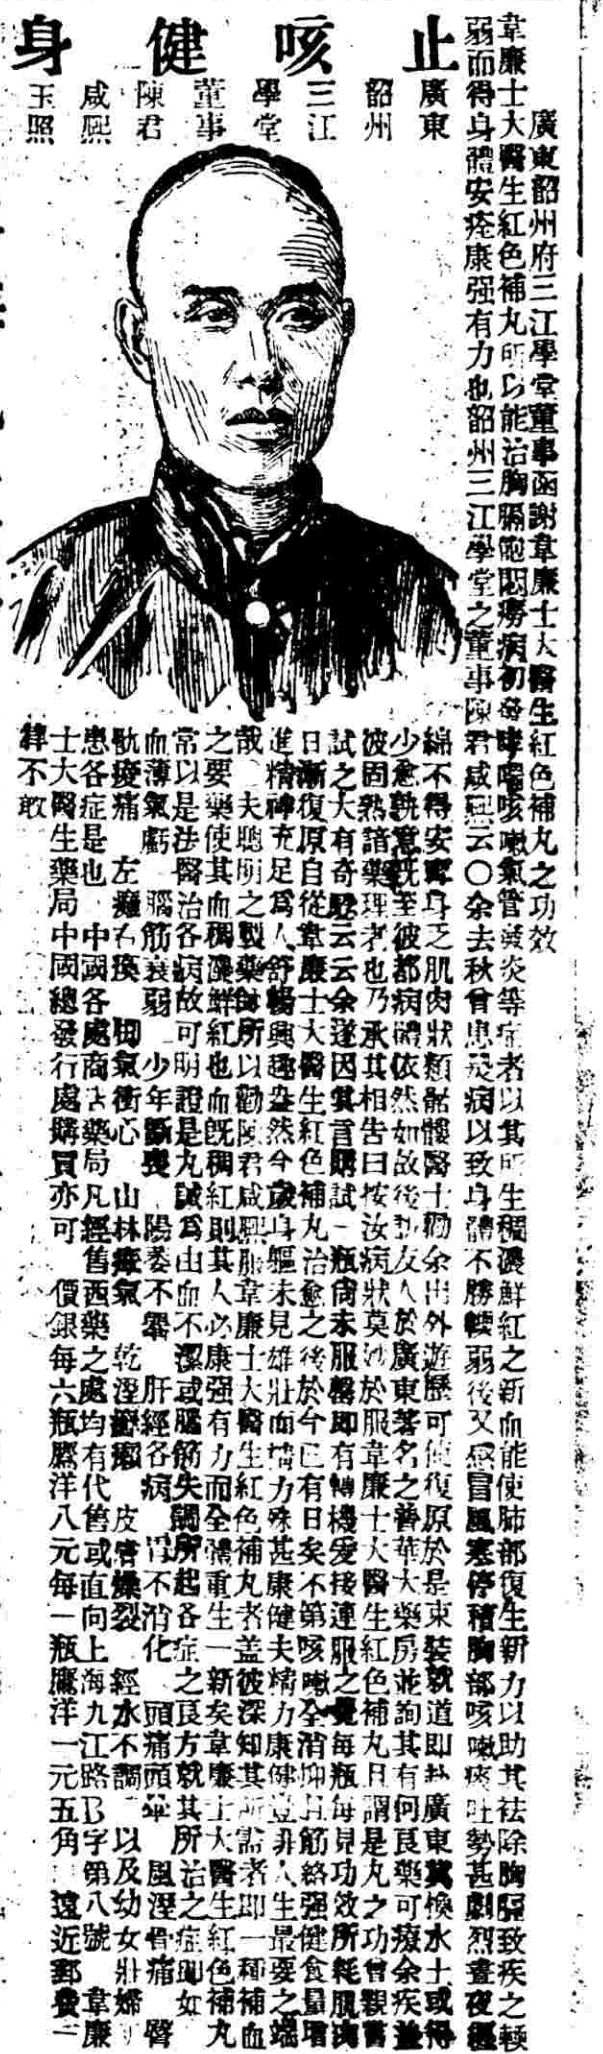 止咳健身
廣東
韶州
三江
學堂
董事
陳君
咸熙
玉照
廣東韶州府三江學堂董事函謝韋廉士大醫生紅色補丸之功效
韋廉士大醫生紅色補丸所以能治胸膈飽悶癆病初發哮喘咳嗽氣管發炎等症者以其所生稠濃鮮紅之新血能使肺部復生新力以助其袪除胸膈致疾之輭
弱而得身體安痊康强有力也韶州三江學堂之董事陳君咸熙云〇余去秋曾患是病以致身體不勝輭弱後又感冒風寒停積胸部咳嗽痰吐勢甚劇烈晝夜纒
綿不得安寧身乏肌肉狀類骷髏醫士勸余出外遊歷可使復原於是束裝就道即赴廣東冀換水土或得
少愈詎意旣至彼都病體依然如故後訪友人於廣東著名之普華大藥房並詢其有何良藥可療余疾並
彼固熟諳藥理者也乃承其相告曰按汝病狀莫妙於服韋廉士大醫生紅色補丸且謂是丸之功曾親嘗
試之大有奇驗云云余遂因其言購試一瓶尙未服罄即有轉機爰接連服之覺每瓶每見功效所耗肌肉
日漸復原自從韋廉士大醫生紅色補丸治愈之後於今已有日矣不第咳嗽全消抑且筋絡强健食量增
進精神充足爲人舒暢興趣盎然今歲身軀未見雄壯而精力殊甚康健夫精力康健豈非人生最要之端
哉 夫聰明之製藥師所以勸陳君咸熙服韋廉士大醫生紅色補丸者蓋彼深知其所需者即一種補血
之要藥使其血稠濃鮮紅也血旣稠紅則其人必康强有力而全體重生一新矣韋廉士大醫生紅色補丸
常以是法醫治各病故可明證是丸誠爲由血不潔或腦筋失調所起各症之良方就其所治之症即如
血薄氣虧 腦筋衰弱 少年斲喪 陽萎不舉 肝經各病 胃不消化 頭痛頭暈 風溼骨痛 臀
骱痠痛 左癱右瘓 田氣衝心 山林瘴氣 乾溼癬瘡 皮膚燥裂 經水不調 以及幼女壯婦
患各症是也 中國各處商店藥局凡經售西藥之處均有代售或直向上海九江路B字第八號 韋廉
士大醫生藥局中國總發行處購買亦可 價銀每六瓶鷹洋八元每一瓶鷹洋一元五角 遠近郵費一
律不取